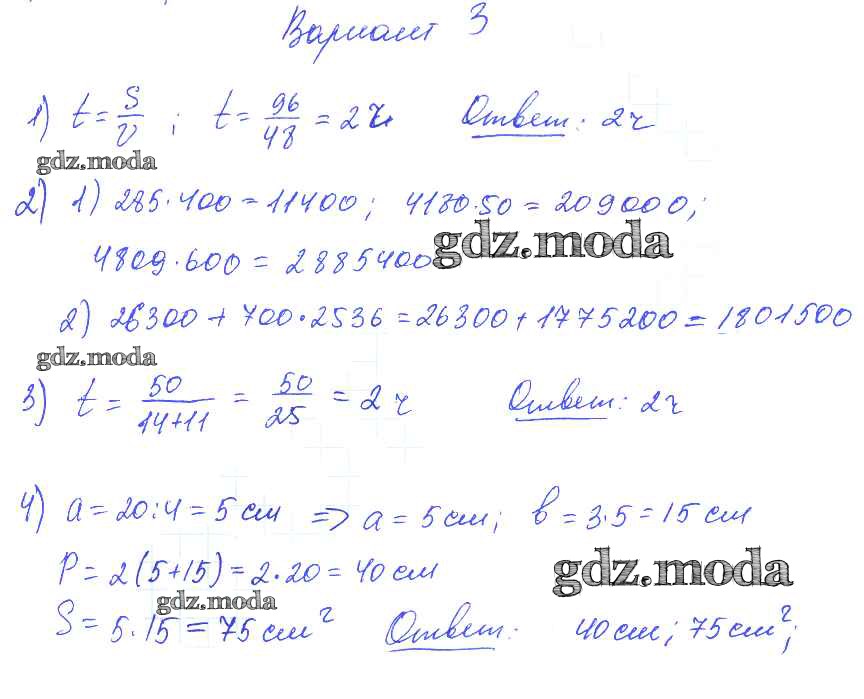 Вариант 3
1) t = S/v ; t = 96/48 = 2 ч. Ответ: 2ч
gdz.moda
2) 1) 285·400 = 11400; 4180·50 = 209000;
gdz.moda
4809·600 = 2885400
2) 26300 + 700·2536 = 26300 + 1775200 = 1801500
gdz.moda
3) t = 50/(14+11) = 50/25 = 2 ч Ответ: 2ч
4) a = 20:4 = 5 см => a = 5 см; b = 3·5 = 15 см
P = 2(5+15) = 2·20 = 40 см
gdz.moda
gdz.moda
S = 5·15 = 75 см² Ответ: 40 см; 75 см²;